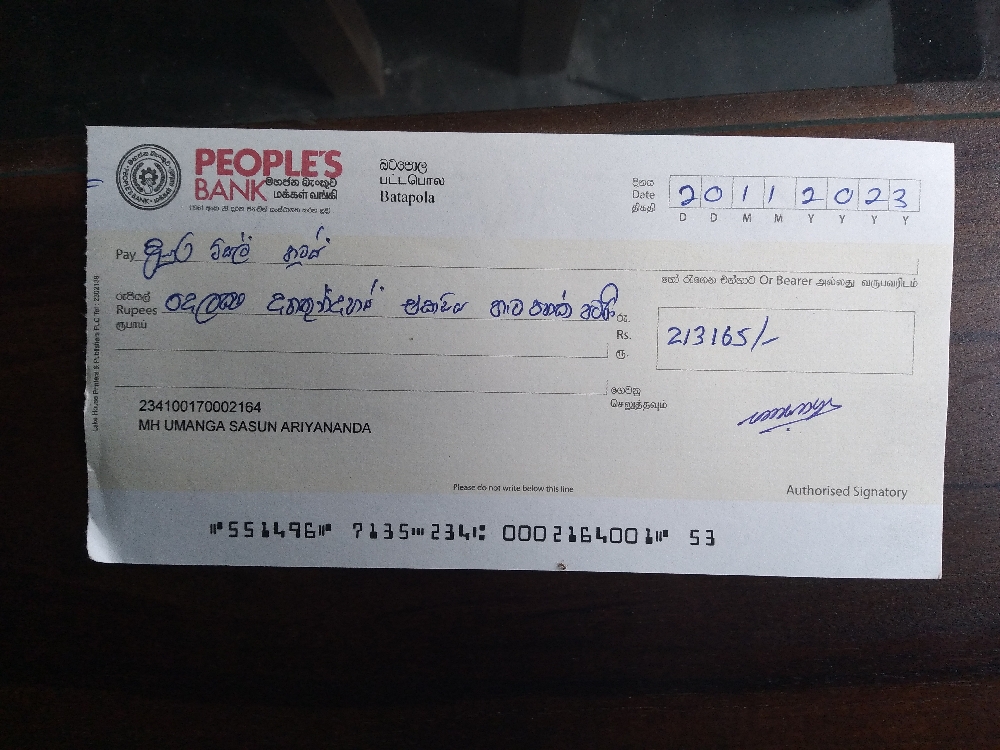 PEOPLE'S
BANK මහජන බැංකුව
மக்கள் வங்கி
බටපොල
பட்டபொல
Batapola
දිනය
Date
திகதி
20 11 2023
D D M M Y Y Y Y
Pay
හෝ රැගෙන එන්නාට Or Bearer அல்லது வருபவரிடம்
රුපියල්
Rupees දෙලක්ෂ දහතුන්දහස් එකසිය හැට පහක් පමණි
ரூபாய்
රු.
Rs. 213165/-
ரூ.
ගෙවනු
செலுத்தவும்
234100170002164
MH UMANGA SASUN ARIYANANDA
Please do not write below this line
Authorised Signatory
⑈551496⑈ 7135⑉234⑆ 0002164001⑈ 53